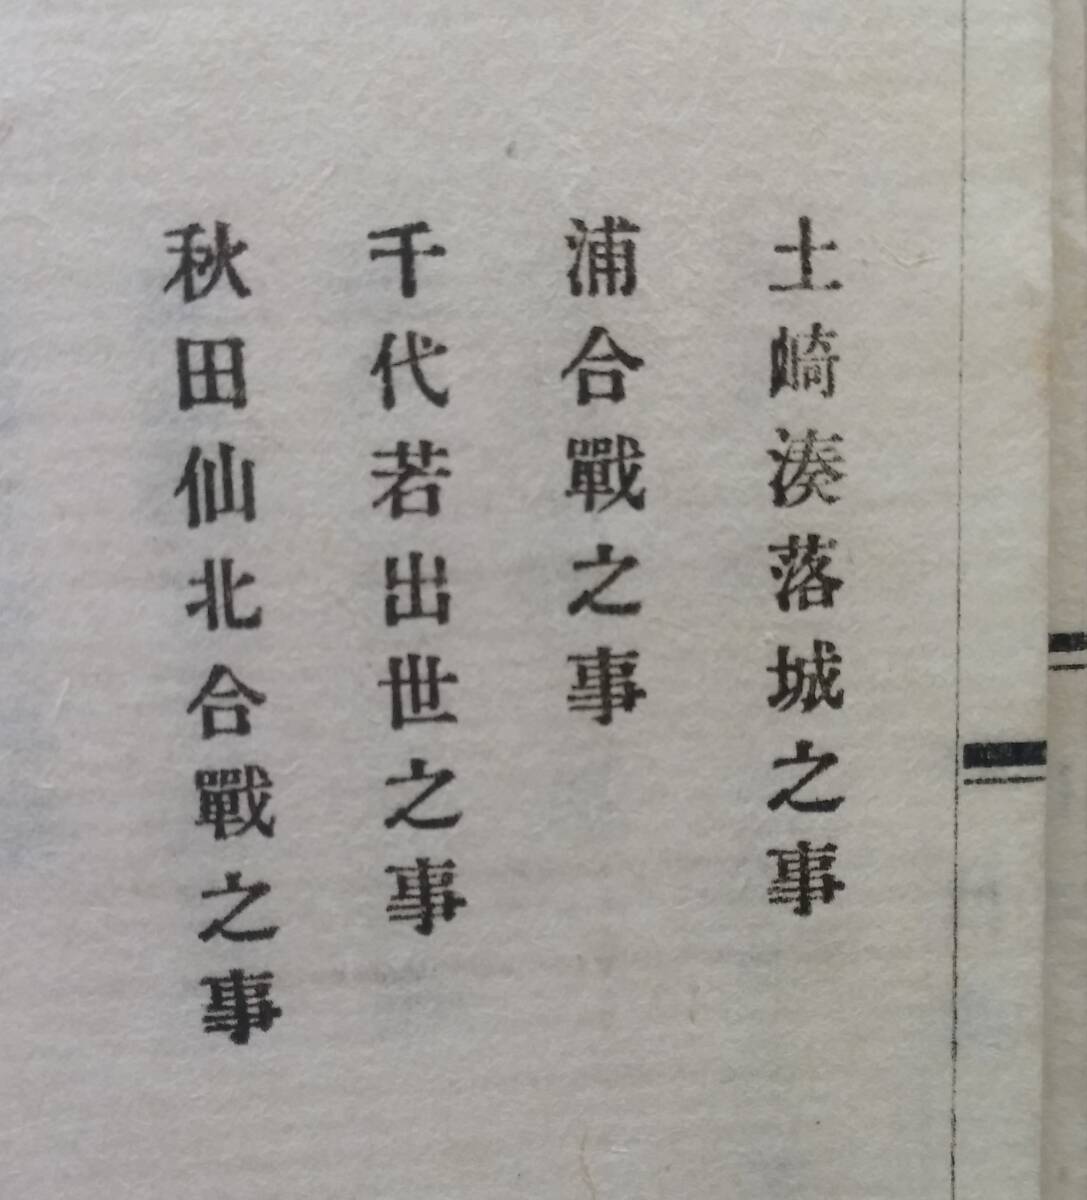 土崎湊落城之事
浦合戰之事
千代若出世之事
秋田仙北合戰之事